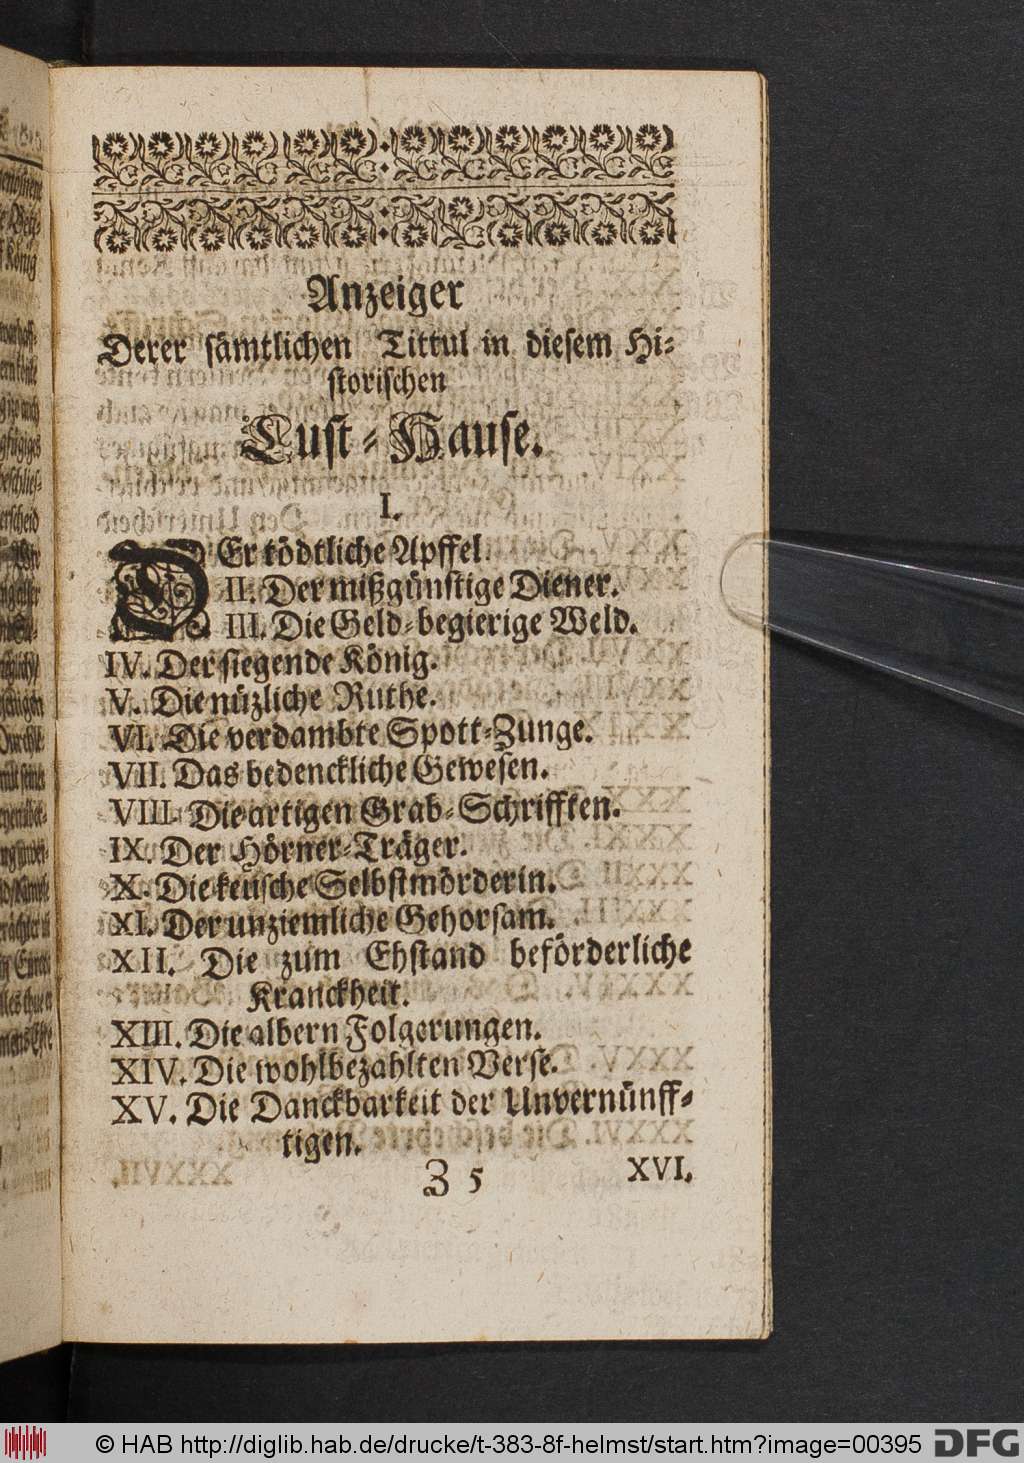 Anzeiger
Derer sämtlichen Tittul in diesem Hi-
storischen
Lust-Hause.
I.
DEr tödtliche Apffel.
II. Der mißgünstige Diener.
III. Die Geld-begierige Weld.
IV. Der siegende König.
V. Die nüzliche Ruthe.
VI. Die verdambte Spott-Zunge.
VII. Das bedenckliche Gewesen.
VIII. Die artigen Grab-Schrifften.
IX. Der Hörner-Träger.
X. Die keusche Selbstmörderin.
XI. Der unziemliche Gehorsam.
XII. Die zum Ehstand beförderliche
Kranckheit.
XIII. Die albern Folgerungen.
XIV. Die wohlbezahlten Verse.
XV. Die Danckbarkeit der Unvernünff-
tigen.
Z 5 XVI.
© HAB http://diglib.hab.de/drucke/t-383-8f-helmst/start.htm?image=00395 DFG